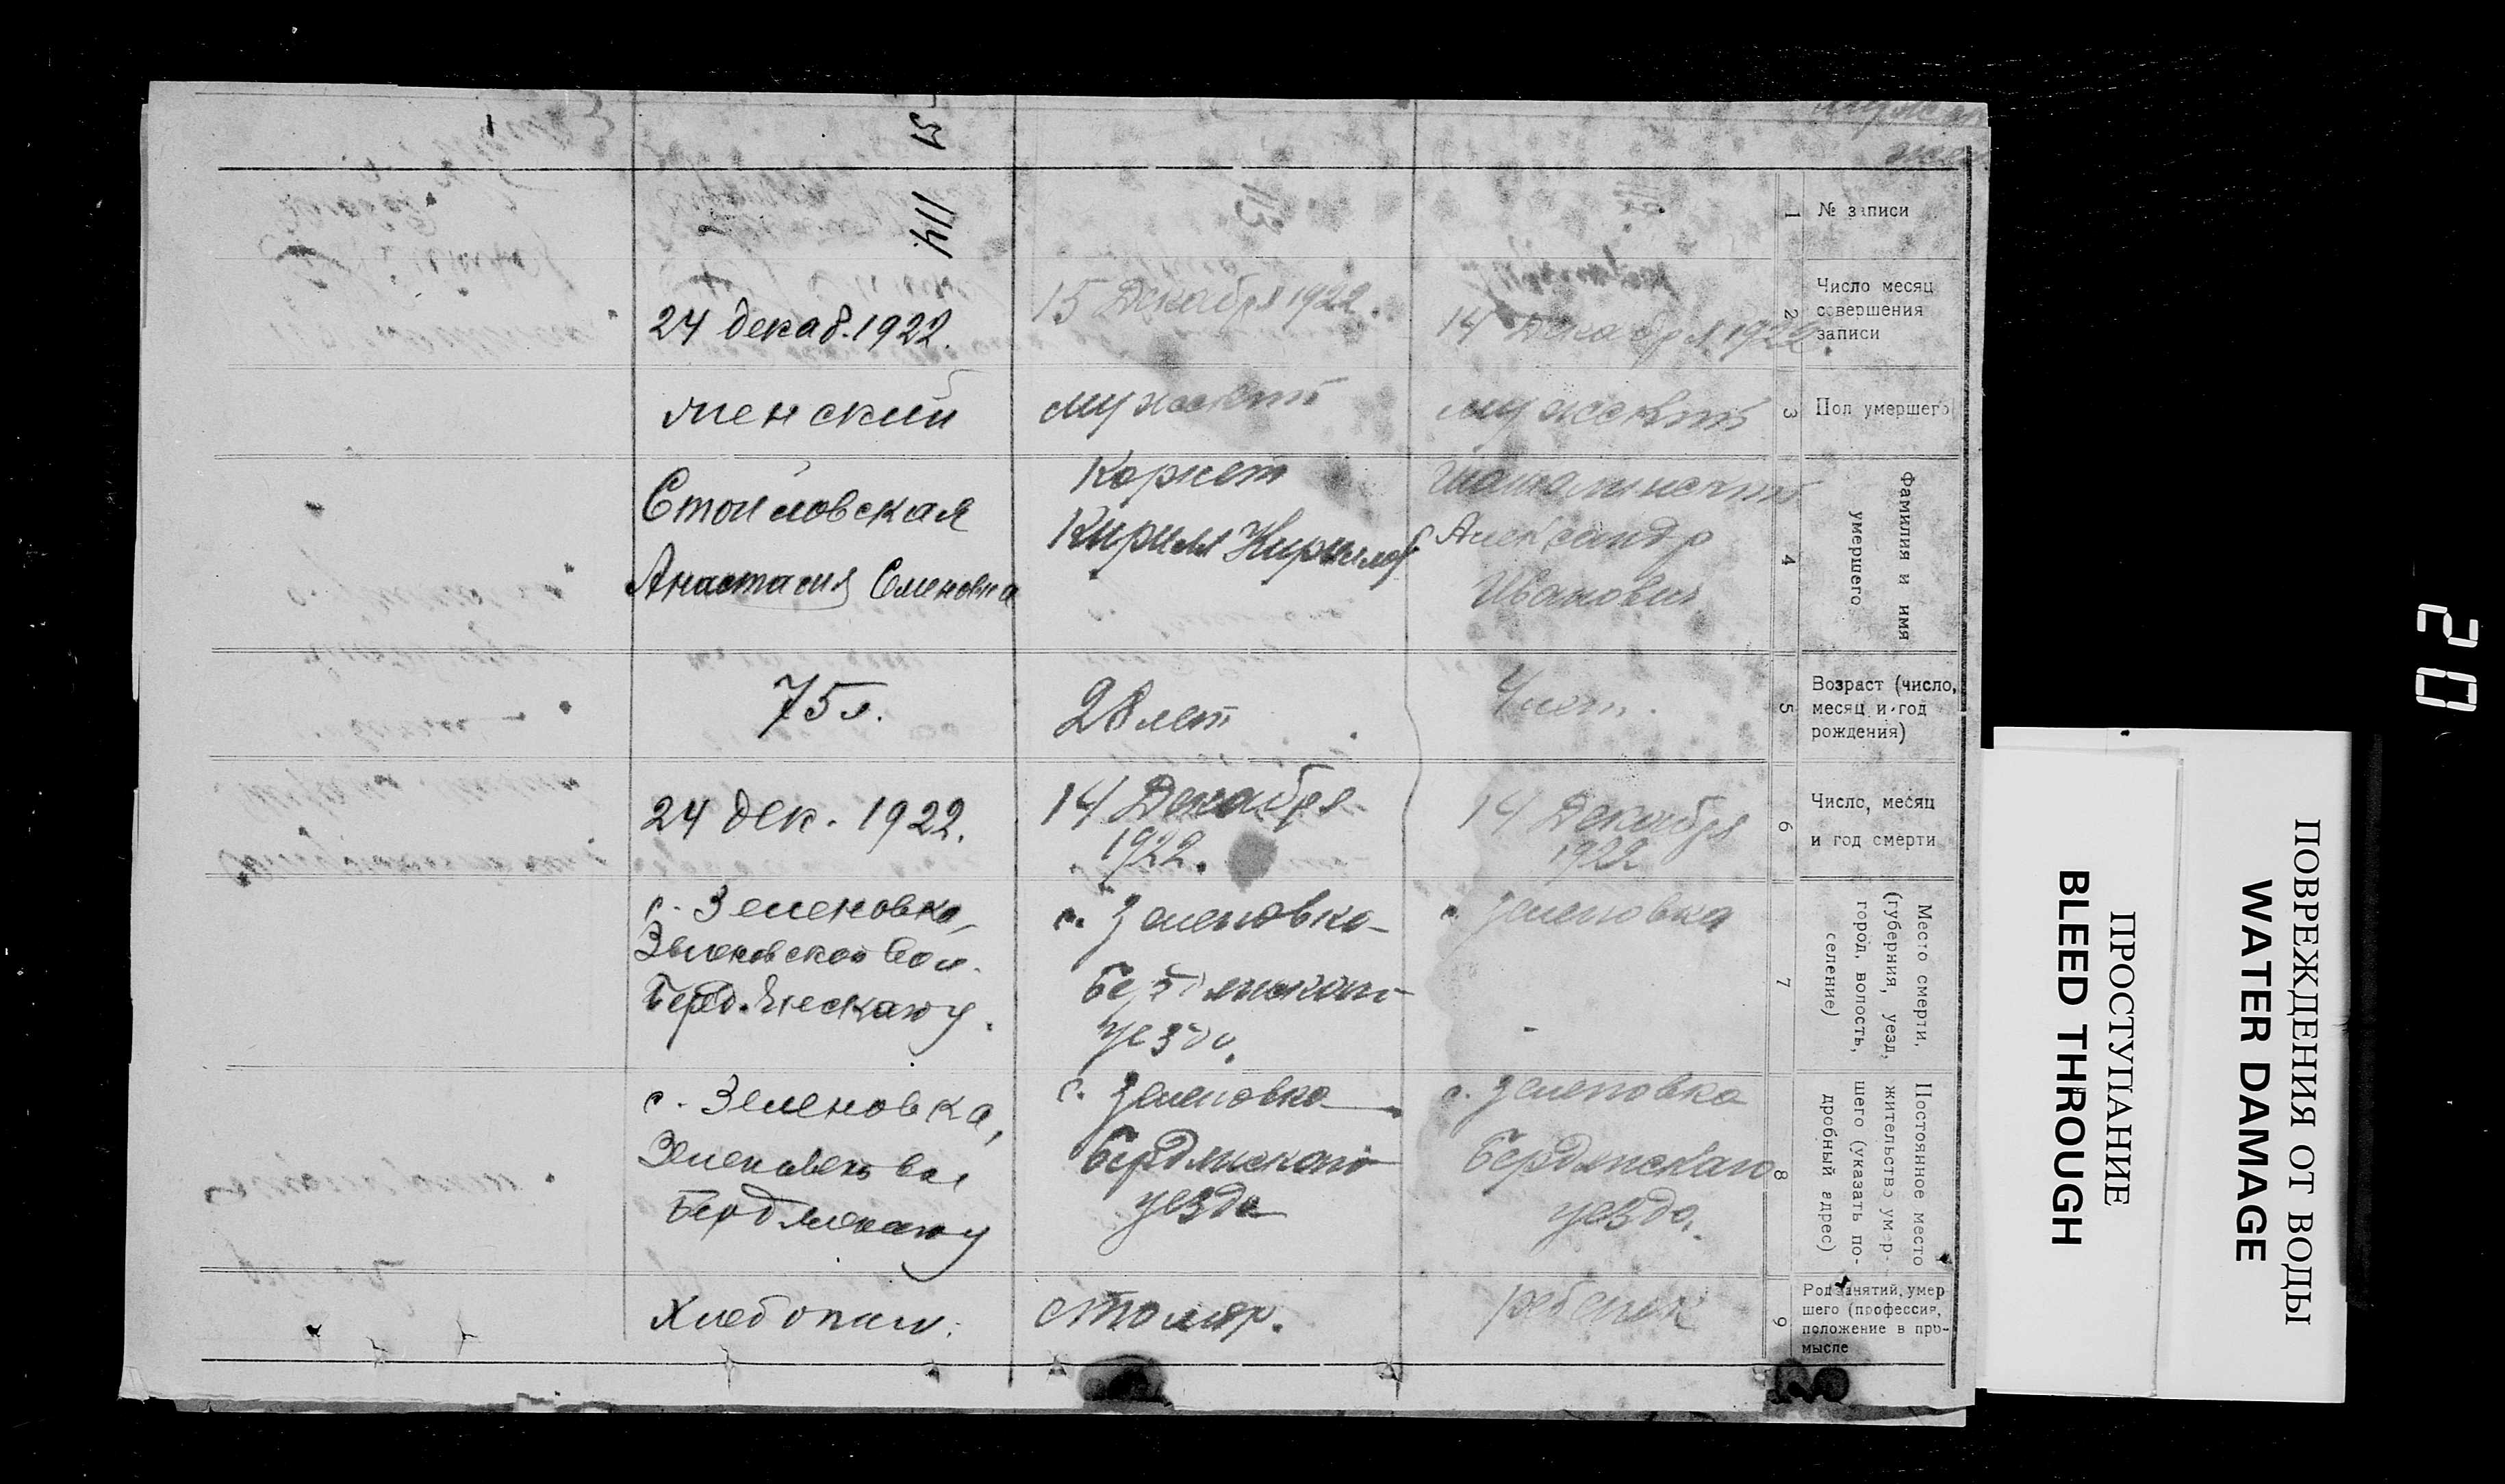 15
№ записи
1
114
113
Число месяц
совершения
записи
2
14 Декабря 1922.
15 Декабря 1922.
24 декаб. 1922.
Пол умершего
3
мужской
мужской
женский
Фамилия и имя
умершего
4
Александр
Иванович
Корнет
Кирилл Кирилов
Стойловская
Анастасия Семеновна
Возраст (число,
месяц и год
рождения)
5
лет.
28 лет
75 л.
Число, месяц
и год смерти
6
14 Декабря
1922
14 Декабря
1922.
24 дек. 1922.
Место смерти,
(губерния, уезд,
город, волость,
селение)
7
с. Зеленовка
с. Зеленовка
Бердянского
уезда.
с. Зеленовка,
Зеленовской вол.
Бердянскаго у.
Постоянное место
жительство умер-
шего (указать по-
дробный адрес)
8
с. Зеленовка
Бердянскаго
уезда.
с. Зеленовка
Бердянского
уезда
с. Зеленовка,
Зеленовск вол
Бердянскаго у
Род занятий, умер
шего (профессия,
положение в про-
мысле
9
ребенок
столяр.
Хлебопаш.
20
ПОВРЕЖДЕНИЯ ОТ ВОДЫ
WATER DAMAGE
ПРОСТУПАНИЕ
BLEED THROUGH